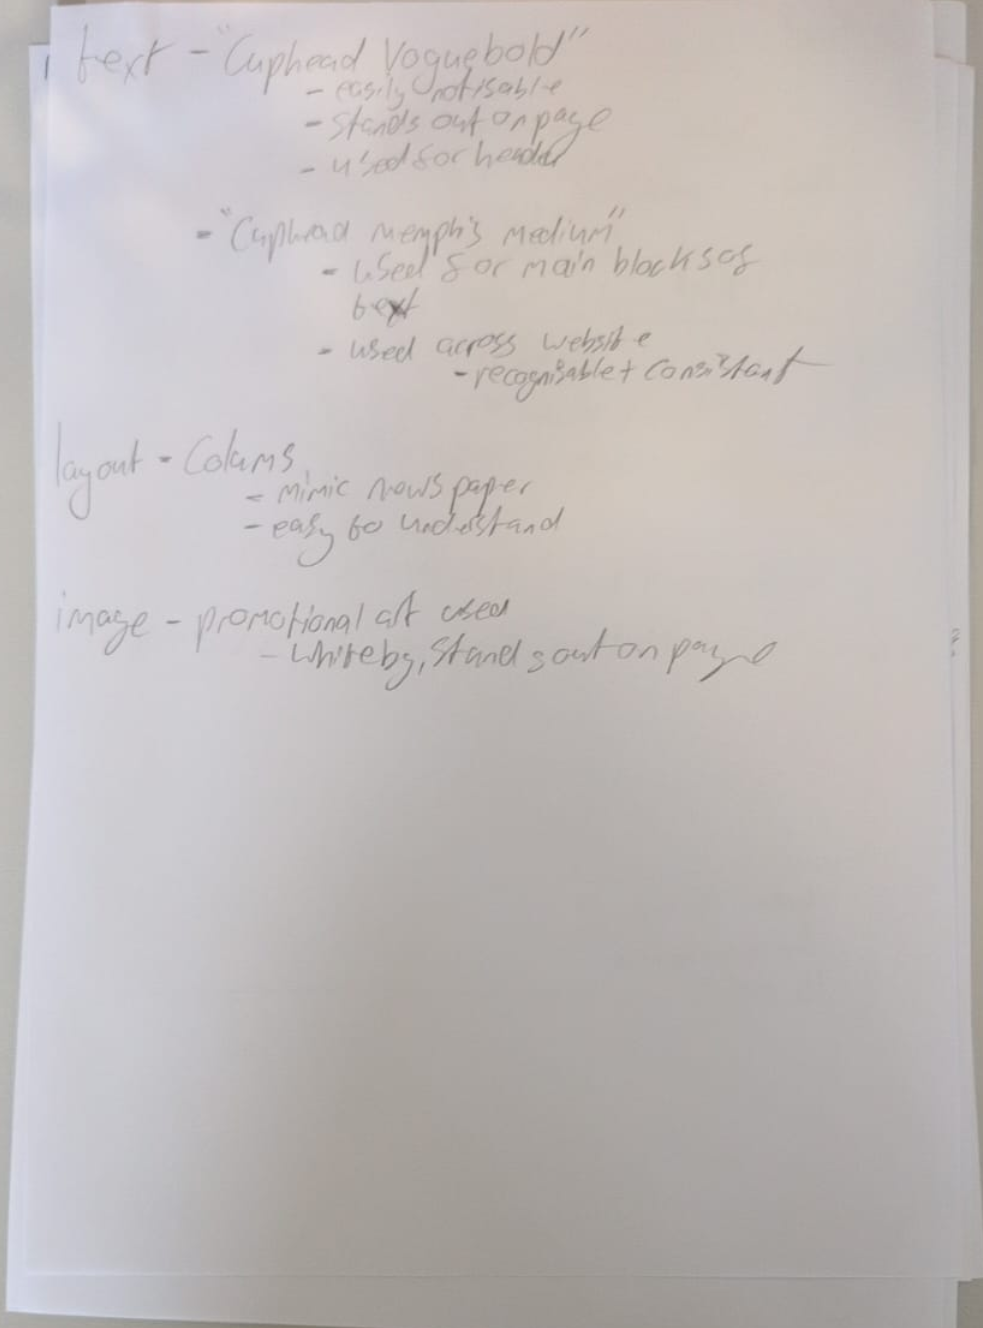 text - "Cuphead Voguebold"
- easily notisable
- stands out on page
- used for header
- "Cuphead memphis medium"
- used for main blocks of
text
- used across website
- recognisable + consistant
layout - Colums
- mimic newspaper
- easy to understand
image - promotional art used
- white bg, stands out on page